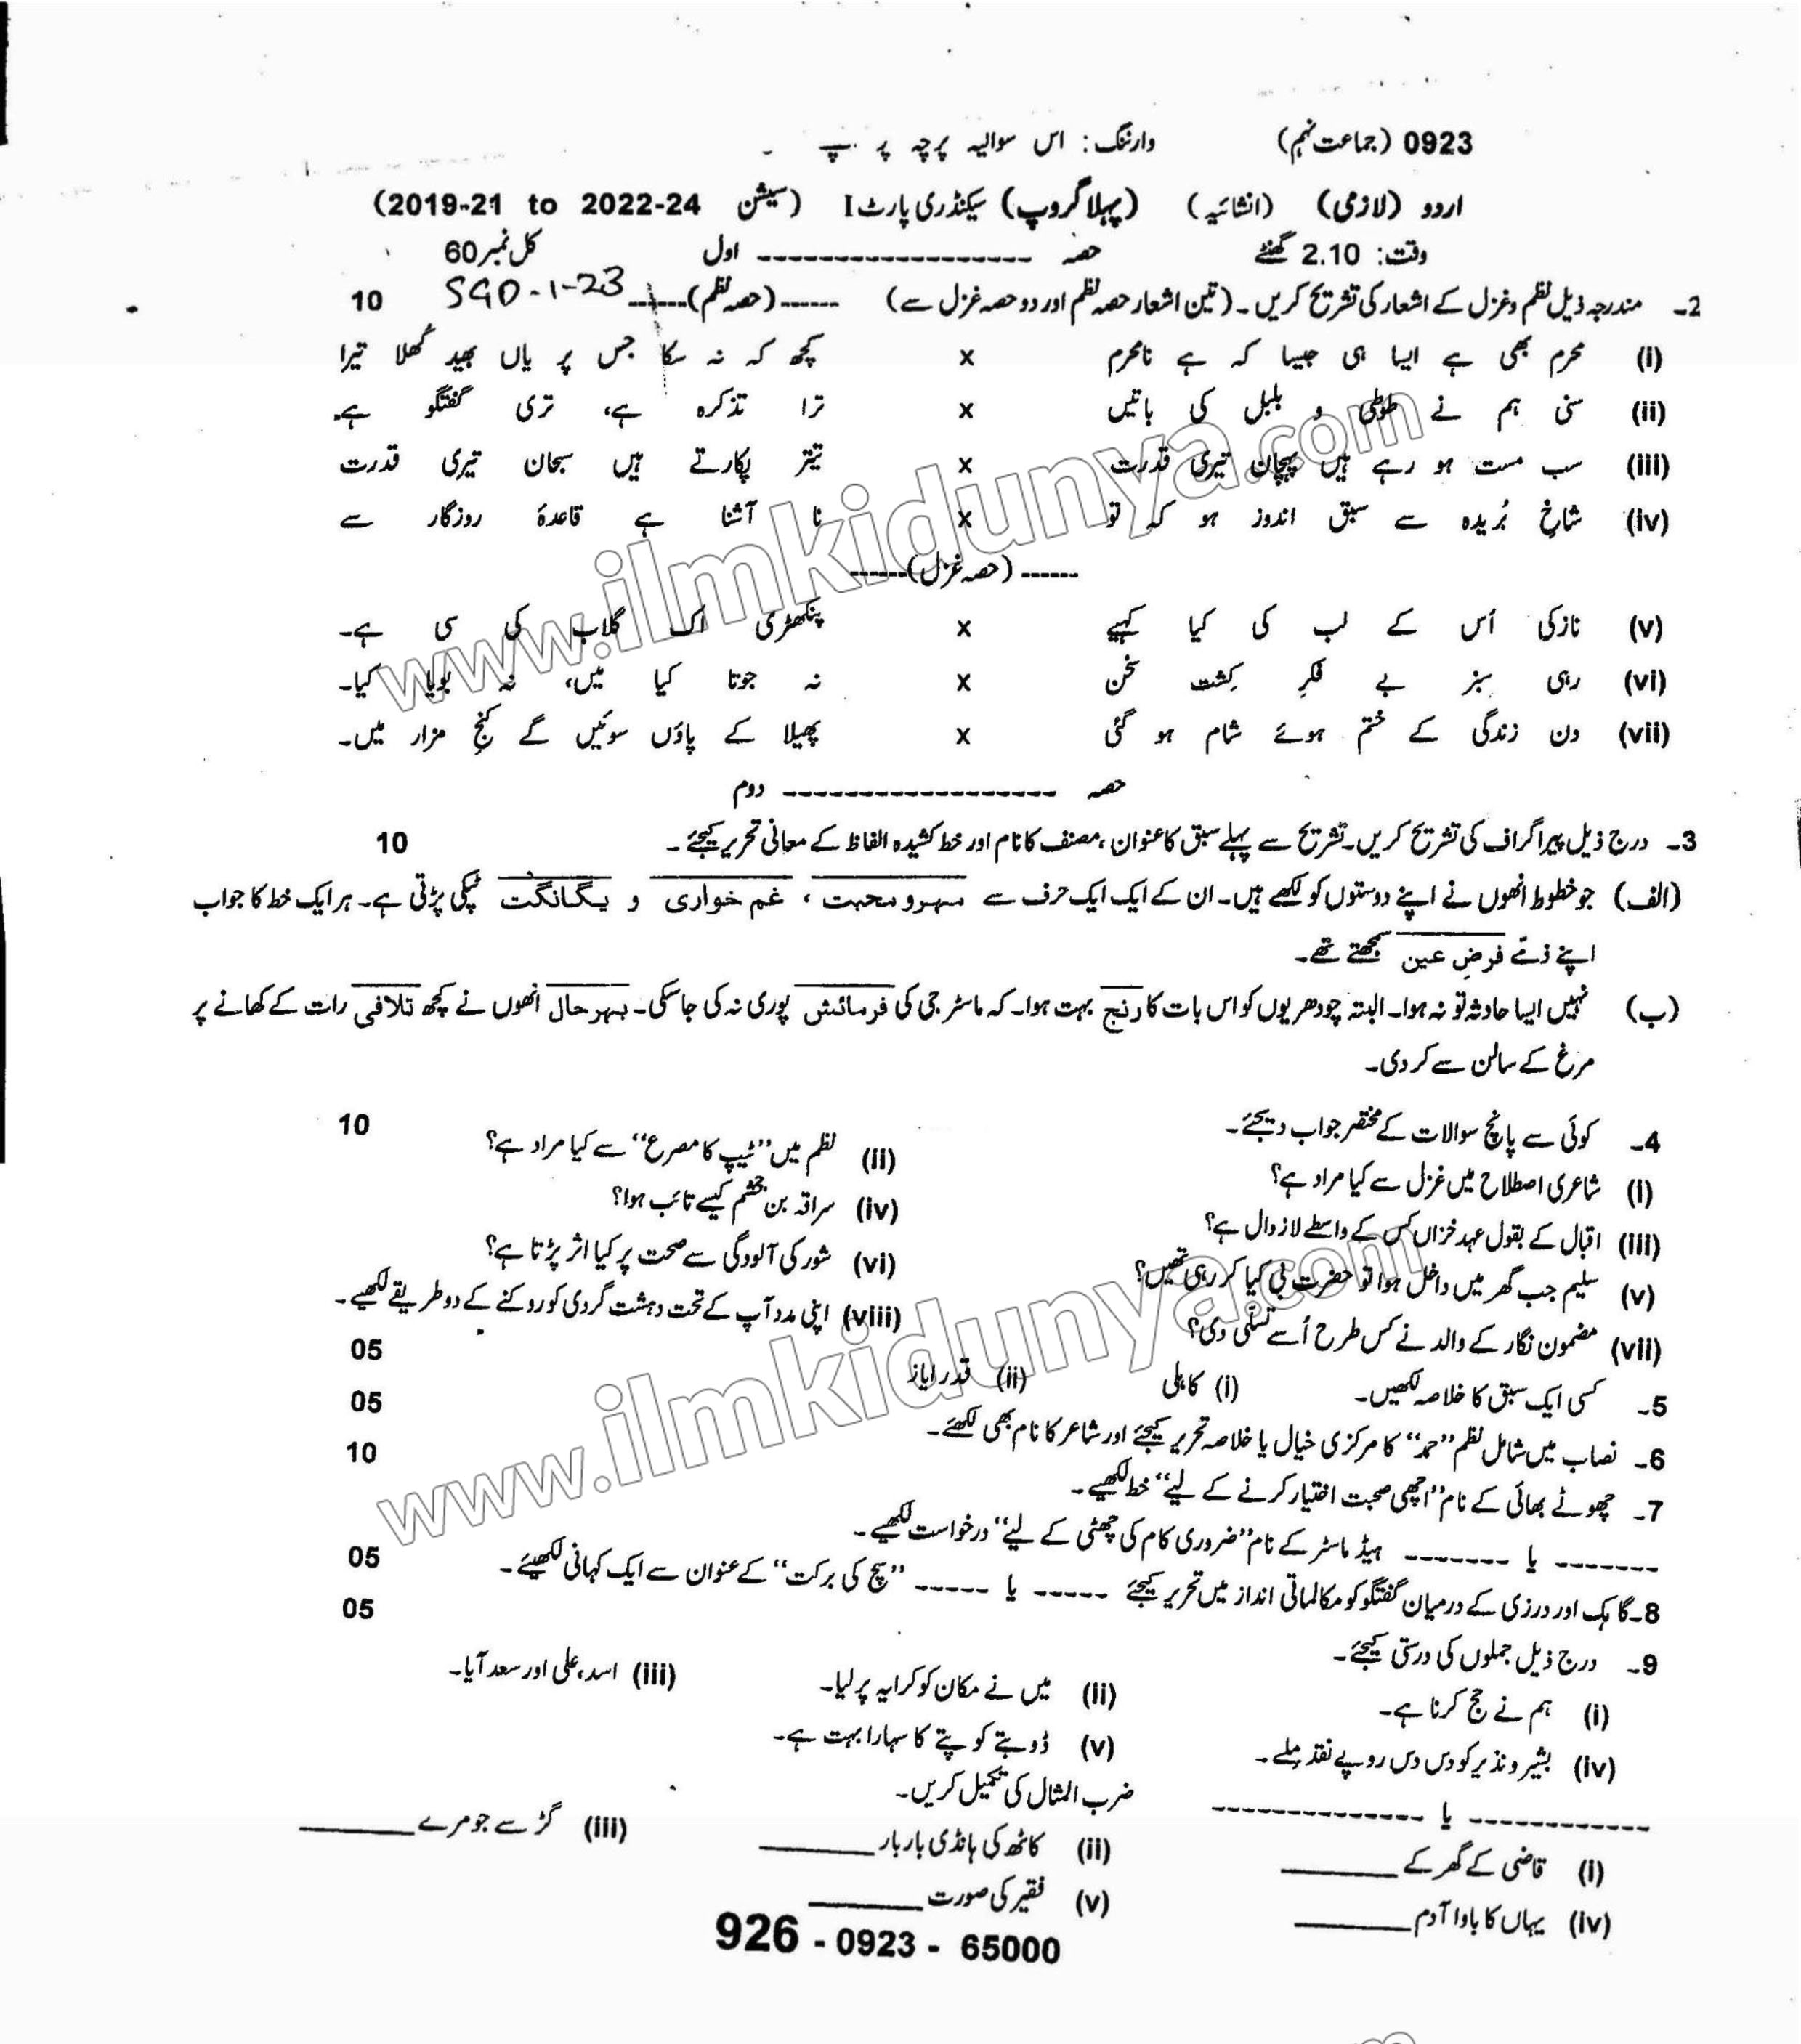 0923 (جماعت نہم) وارننگ: اس سوالیہ پرچہ پر
اردو (لازمی) (انشائیہ) (پہلا گروپ) سیکنڈری پارٹ I (سیشن 2019-21 to 2022-24)
وقت: 2.10 گھنٹے حصہ ------------------ اول کل نمبر 60
2۔ مندرجہ ذیل نظم و غزل کے اشعار کی تشریح کریں۔ (تین اشعار حصہ نظم اور دو حصہ غزل سے) ------(حصہ نظم)------ SGD-1-23 10
(i) محرم بھی ہے ایسا ہی جیسا کہ ہے نامحرم x کچھ کہ نہ سکا جس پر یاں بھید کُھلا تیرا
(ii) سنی ہم نے طوطی و بلبل کی باتیں x ترا تذکرہ ہے، تری گفتگو ہے۔
(iii) سب مست ہو رہے ہیں پہچان تیری قدرت x تیتر پکارتے ہیں سبحان تیری قدرت
(iv) شاخِ بُریدہ سے سبق اندوز ہو کہ تو x نا آشنا ہے قاعدۂ روزگار سے
------(حصہ غزل)------
(v) نازکی اُس کے لب کی کیا کہیے x پنکھڑی اک گلاب کی سی ہے۔
(vi) رہی سبز بے فکرِ کِشت سخن x نہ جوتا کیا میں، نہ بویا کیا۔
(vii) دن زندگی کے ختم ہوئے شام ہو گئی x پھیلا کے پاؤں سوئیں گے کنجِ مزار میں۔
حصہ ------------------ دوم
3۔ درج ذیل پیراگراف کی تشریح کریں۔ تشریح سے پہلے سبق کا عنوان، مصنف کا نام اور خط کشیدہ الفاظ کے معانی تحریر کیجئے۔ 10
(الف) جو خطوط انھوں نے اپنے دوستوں کو لکھے ہیں۔ ان کے ایک ایک حرف سے مہرومحبت، غم خواری و یگانگت ٹپکی پڑتی ہے۔ ہر ایک خط کا جواب
اپنے ذمّے فرضِ عین سمجھتے تھے۔
(ب) نہیں ایسا حادثہ تو نہ ہوا۔ البتہ چودھریوں کو اس بات کا رنج بہت ہوا۔ کہ ماسٹر جی کی فرمائش پوری نہ کی جا سکی۔ بہرحال انھوں نے کچھ تلافی رات کے کھانے پر
مرغ کے سالن سے کر دی۔
4۔ کوئی سے پانچ سوالات کے مختصر جواب دیجئے۔ 10
(i) شاعری اصطلاح میں غزل سے کیا مراد ہے؟ (ii) نظم میں "ٹیپ کا مصرع" سے کیا مراد ہے؟
(iii) اقبال کے بقول عہد خزاں کس کے واسطے لازوال ہے؟ (iv) سراقہ بن جعشم کیسے تائب ہوا؟
(v) سلیم جب گھر میں داخل ہوا تو حضرت بی کیا کر رہی تھیں؟ (vi) شور کی آلودگی سے صحت پر کیا اثر پڑتا ہے؟
(vii) مضمون نگار کے والد نے کس طرح اُسے تسلّی دی؟ (viii) اپنی مدد آپ کے تحت دہشت گردی کو روکنے کے دو طریقے لکھیے۔
5۔ کسی ایک سبق کا خلاصہ لکھیں۔ (i) کاہلی (ii) قدر ایاز 05
6۔ نصاب میں شامل نظم "حمد" کا مرکزی خیال یا خلاصہ تحریر کیجئے اور شاعر کا نام بھی لکھئے۔ 05
7۔ چھوٹے بھائی کے نام "اچھی صحبت اختیار کرنے کے لیے" خط لکھیے۔ 10
------- یا ------- ہیڈ ماسٹر کے نام "ضروری کام کی چھٹی کے لیے" درخواست لکھیے۔
8۔ گاہک اور درزی کے درمیان گفتگو کو مکالماتی انداز میں تحریر کیجئے ----- یا ----- "سچ کی برکت" کے عنوان سے ایک کہانی لکھیئے۔ 05
9۔ درج ذیل جملوں کی درستی کیجئے۔ 05
(i) ہم نے حج کرنا ہے۔ (ii) میں نے مکان کو کرایہ پر لیا۔ (iii) اسد، علی اور سعد آیا۔
(iv) بشیر و نذیر کو دس دس روپے نقد ملے۔ (v) ڈوبتے کو پتے کا سہارا بہت ہے۔
------------ یا -------------- ضرب المثال کی تکمیل کریں۔
(i) قاضی کے گھر کے ________ (ii) کاٹھ کی ہانڈی بار بار ________ (iii) گڑ سے جو مرے ________
(iv) یہاں کا باوا آدم ________ (v) فقیر کی صورت ________
926 - 0923 - 65000
www.ilmkidunya.com
www.ilmkidunya.com